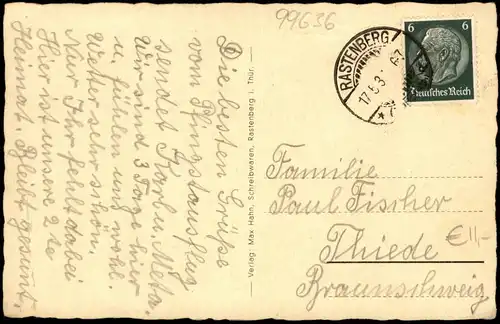 99636
Die besten Grüße
vom Pfingstausflug
sendet Karl u. Meta.
Wir sind 3 Tage hier
u. fühlen uns wohl.
Wetter sehr schön.
Nur Ihr fehlt dabei
Hier ist unsere 2te
Heimat. Bleibt gesund.
Verlag: Max Hahn, Schreibwaren, Rastenberg i. Thür.
RASTENBERG
17.5.3
6
6
Deutsches Reich
Familie
Paul Fischer
Thiede
€11,-
Braunschweig